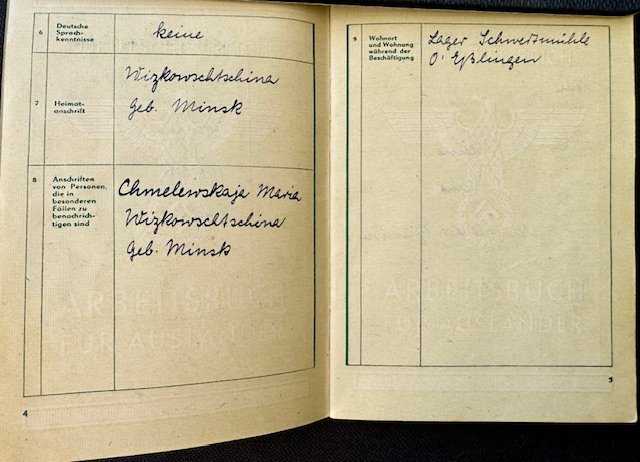 6 Deutsche
Sprach-
kenntnisse
keine
7 Heimat-
anschrift
Wizkowschtschina
Geb. Minsk
8 Anschriften
von Personen,
die in
besonderen
Fällen zu
benachrich-
tigen sind
Chmelewskaja Maria
Wizkowschtschina
Geb. Minsk
ARBEITSBUCH
FÜR AUSLÄNDER
4
9 Wohnort
und Wohnung
während der
Beschäftigung
Lager Schwertmühle
O' Eßlingen
ARBEITSBUCH
FÜR AUSLÄNDER
5